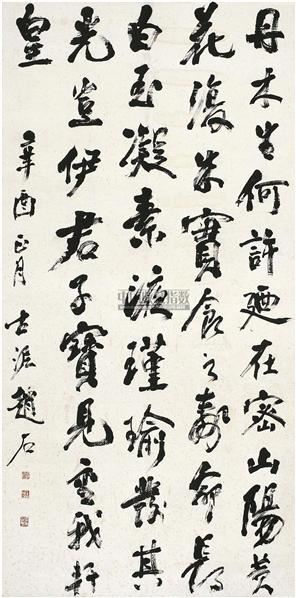 丹木生何許廼在密山陽黃
花復朱實食之壽命長
白玉凝素液瑾瑜發其
光豈伊君子寶見重我軒
皇
辛酉正月 古泥趙石